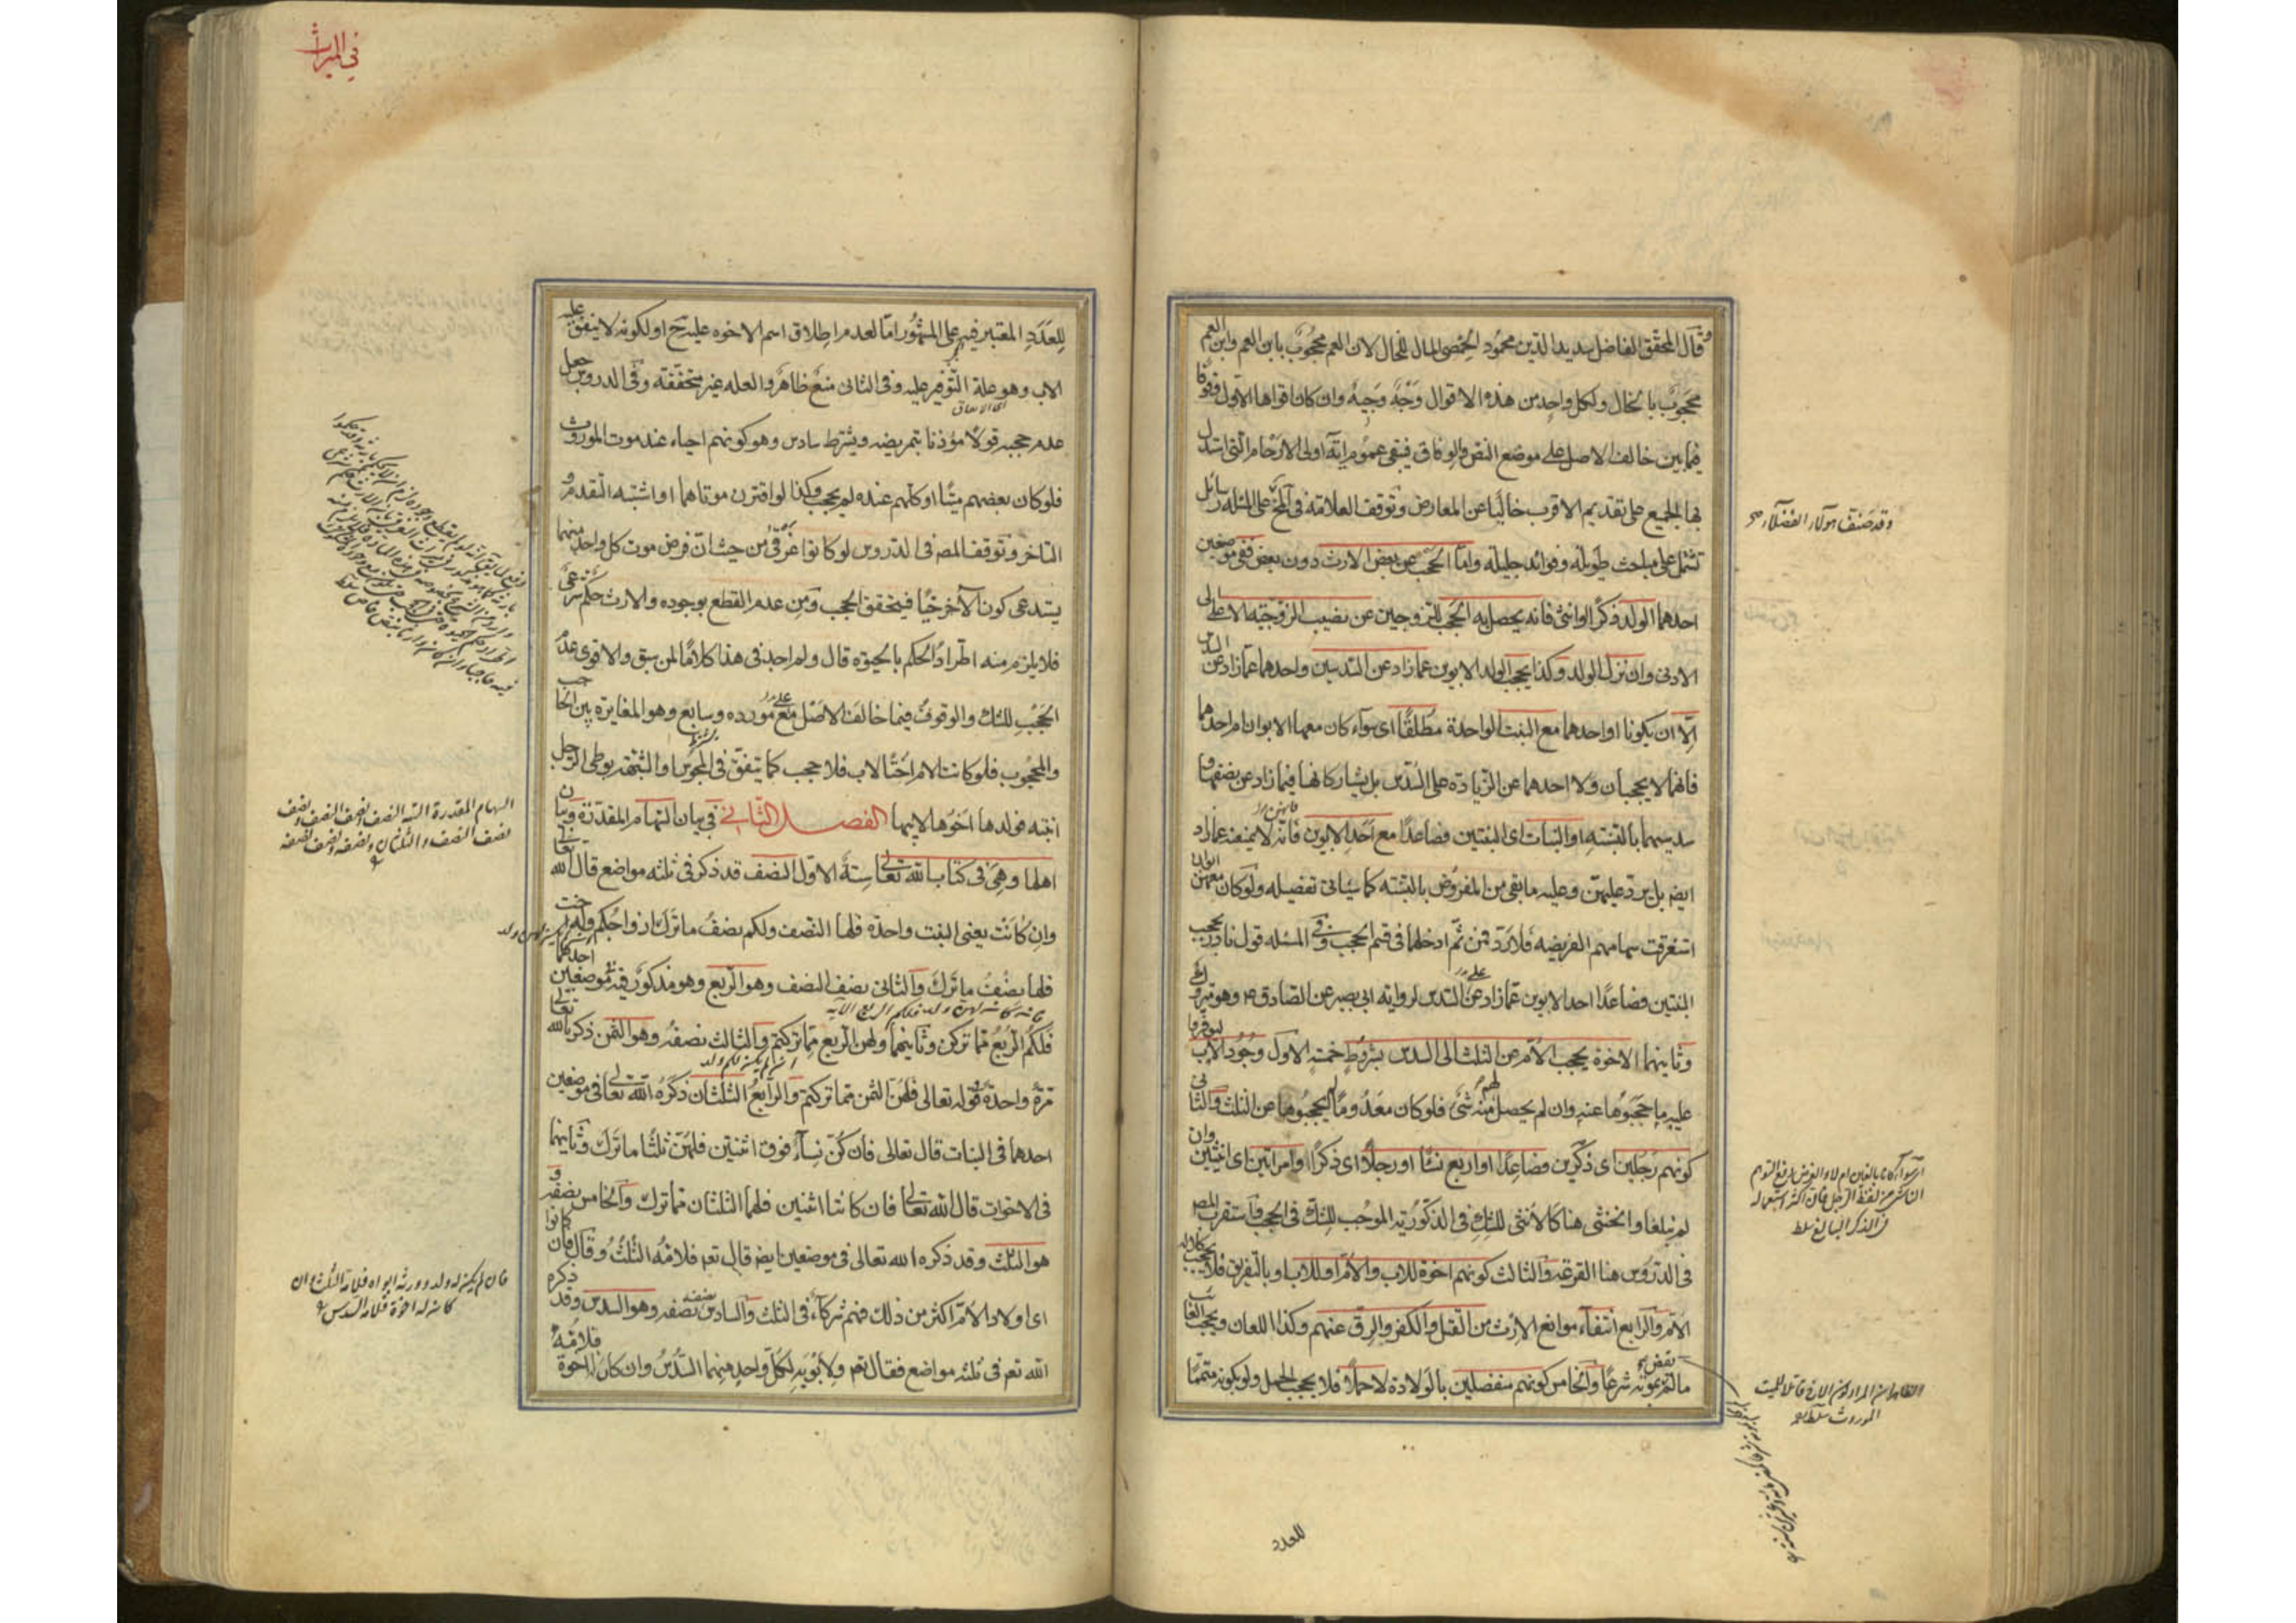 وقال المحقق الفاضل سديد الدين محمود الحمصي المال للخال لان العم محجوب بابن العم وابن العم
محجوب بالخال ولكل واحد من هذه الاقوال وجه وجيه وان كان اقواها الاول وقوفا
فيما بين خالف الاصل على موضع النص والوفاق فيبقى عموم اية اولى الارحام التى استدل
بها الجميع على تقديم الاقرب خاليا عن المعارض وتوقف العلامة فى المخ على المسئله رسائل
تشتمل على مباحث طويله وفوائد جليله واما الحجب عن بعض الارث دون بعض ففى موضعين
احدهما الولد ذكرا او انثى فانه يحصل به الحجب للزوجين عن نصيب الزوجيه الاعلى الى
الادنى وان نزل الولد وكذا يحجب الولد الابوين عما زاد عن السدسين واحدهما عما زاد عن السدس
الا ان يكونا او احدهما مع البنت الواحدة مطلقا اى سواء كان معها الابوان ام احدهما
فانهما لا يحجبان ولا احدهما عن الزيادة على السدس بل يشاركانها فيما زاد عن نصفها و
سدسيهما بالنسبة او البنات اى البنتين فصاعدا مع احد الابوين فانه لا يمنعه عما زاد
ايضا بل يرد عليهن وعليه ما بقى من المفروض بالنسبه كما سياتى تفصيله ولو كان معهن ابوان
استغرقت سهامهم الفريضه فلا رد فمن ثم ادخلها فى قسم الحجب وفى المسئله قول نادر بحجب
البنتين فصاعدا احد الابوين عما زاد عن السدس لروايه ابى بصير عن الصادق ع وهو متروك
وثانيهما الاخوة يحجب الام عن الثلث الى السدس بشروط خمسة الاول وجود الاب ليوفروا
عليه ما حجبوها عنه وان لم يحصل لهم منه شئ فلو كان معدوما لم يحجبوها عن الثلث والثانى
كونهم رجلين اى ذكرين فصاعدا او اربع نساء او رجلا اى ذكرا وامراتين اى انثيين وان
لم يبلغا والخنثى هنا كالانثى للشك فى الذكوريه الموجب للشك فى الحجب واستقرب المصنف
فى الدروس هنا القرعه والثالث كونهم اخوة للاب والام او للاب او بالتفريق فلا يحجب كلاله
الام والرابع انتفاء موانع الارث من القتل والكفر والرق عنهم وكذا اللعان ويحجب الغائب
ما لم يقض بموته شرعا والخامس كونهم منفصلين بالولادة لا حملا فلا يحجب الحمل ولو بكونه متمما
وقد صنف هولاء الفضلاء صح
للعدد
فى الميراث
للعدد المعتبر فيه على المشهور اما لعدم اطلاق اسم الاخوه عليه ح او لكونه لا ينفق عليه
الاب وهو علة التوفير عليه وفى الثانى منع ظاهر والعله غير متحققه وفى الدروس جعل
عدم حجبه قولا مؤذنا بتمريضه ويشترط سادس وهو كونهم احياء عند موت الموروث
فلو كان بعضهم ميتا او كلهم عنده لم يحجب وكذا لو اقترن موتاهما او اشتبه التقدم و
التاخر وتوقف المصنف فى الدروس لو كانوا غرقى من حيث ان فرض موت كل واحد منهما
يستدعى كون الاخر حيا فيتحقق الحجب ومن عدم القطع بوجوده والارث حكم شرعى
فلا يلزم منه اطراد الحكم بالحيوة قال ولم اجد فى هذا كلاما لمن سبق والاقوى عدم
الحجب للشك والوقوف فيما خالف الاصل على مورده وسابع وهو المغايرة بين الحاجب
والمحجوب فلو كانت الام اختا لاب فلا حجب كما يتفق فى المجوس او الشبهة بوطى الرجل
ابنته فولدها اخوها لابيها الفصل الثانى فى بيان السهام المقدرة وبيان
اهلها وهى فى كتاب الله تعالى ستة الاول النصف قد ذكر فى ثلثه مواضع قال الله تعالى
وان كانت يعنى البنت واحدة فلها النصف ولكم نصف ما ترك ازواجكم وله اخت
فلها نصف ما ترك والثانى نصف النصف وهو الربع وهو مذكور فيه فى موضعين احدهما
فلكم الربع مما تركن وثانيهما ولهن الربع مما تركتم والثالث نصفه وهو الثمن ذكره الله تعالى
مرة واحدة فى قوله تعالى فلهن الثمن مما تركتم والرابع الثلثان ذكره الله تعالى فى موضعين
احدهما فى البنات قال تعالى فان كن نساء فوق اثنتين فلهن ثلثا ما ترك وثانيهما
فى الاخوات قال الله تعالى فان كانتا اثنتين فلهما الثلثان مما ترك والخامس نصفه و
هو الثلث وقد ذكره الله تعالى فى موضعين ايضا قال تعالى فلامه الثلث وقال فان كانوا
اى اولاد الام اكثر من ذلك فهم شركاء فى الثلث والسادس نصفه وهو السدس وقد ذكره
الله تعالى فى ثلثه مواضع فقال تعالى ولابويه لكل واحد منهما السدس وان كان له اخوة فلامه
السهام المقدرة الستة النصف ونصف النصف ونصف
نصف النصف والثلثان ونصفه ونصف نصفه
فان لم يكن له ولد وورثه ابواه فلامه الثلث فان
كان له اخوة فلامه السدس